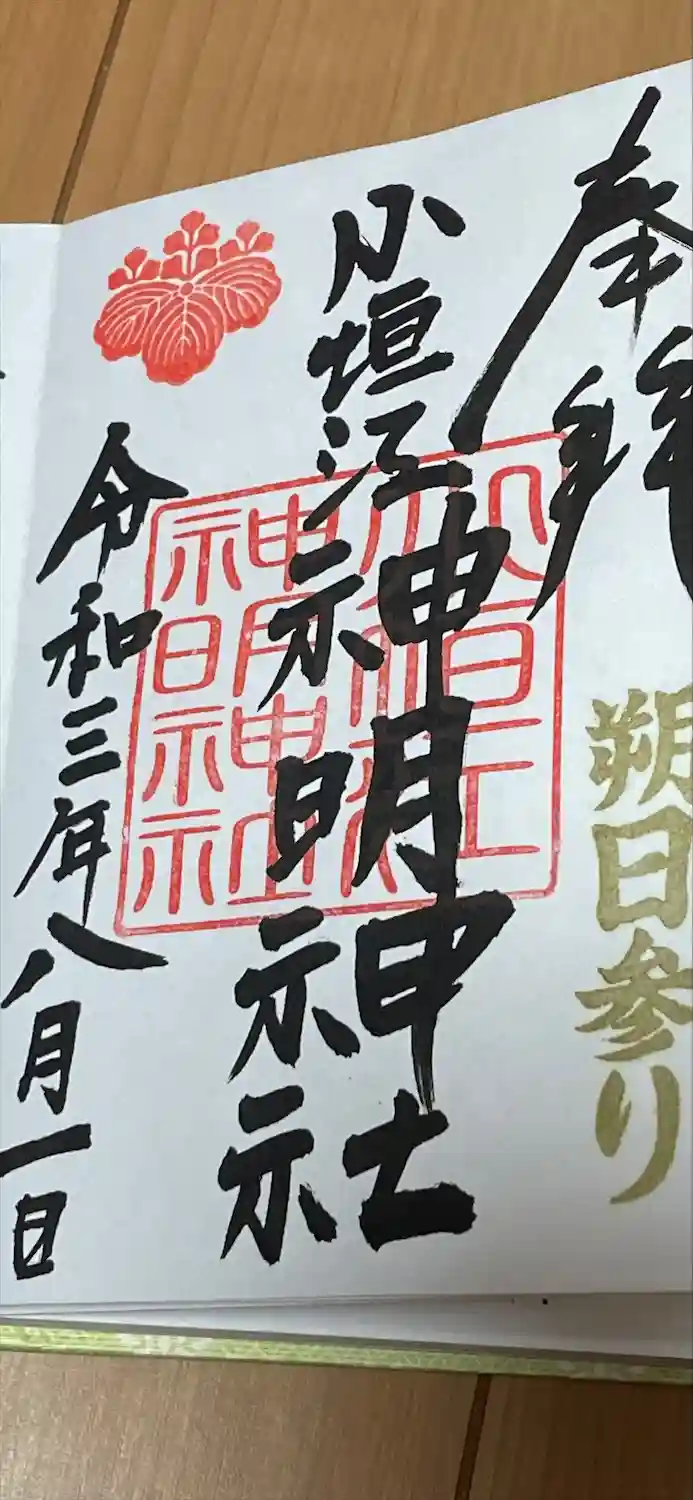 奉拝
朔日参り
小垣江神明神社
小垣江
神明神社
令和三年八月一日